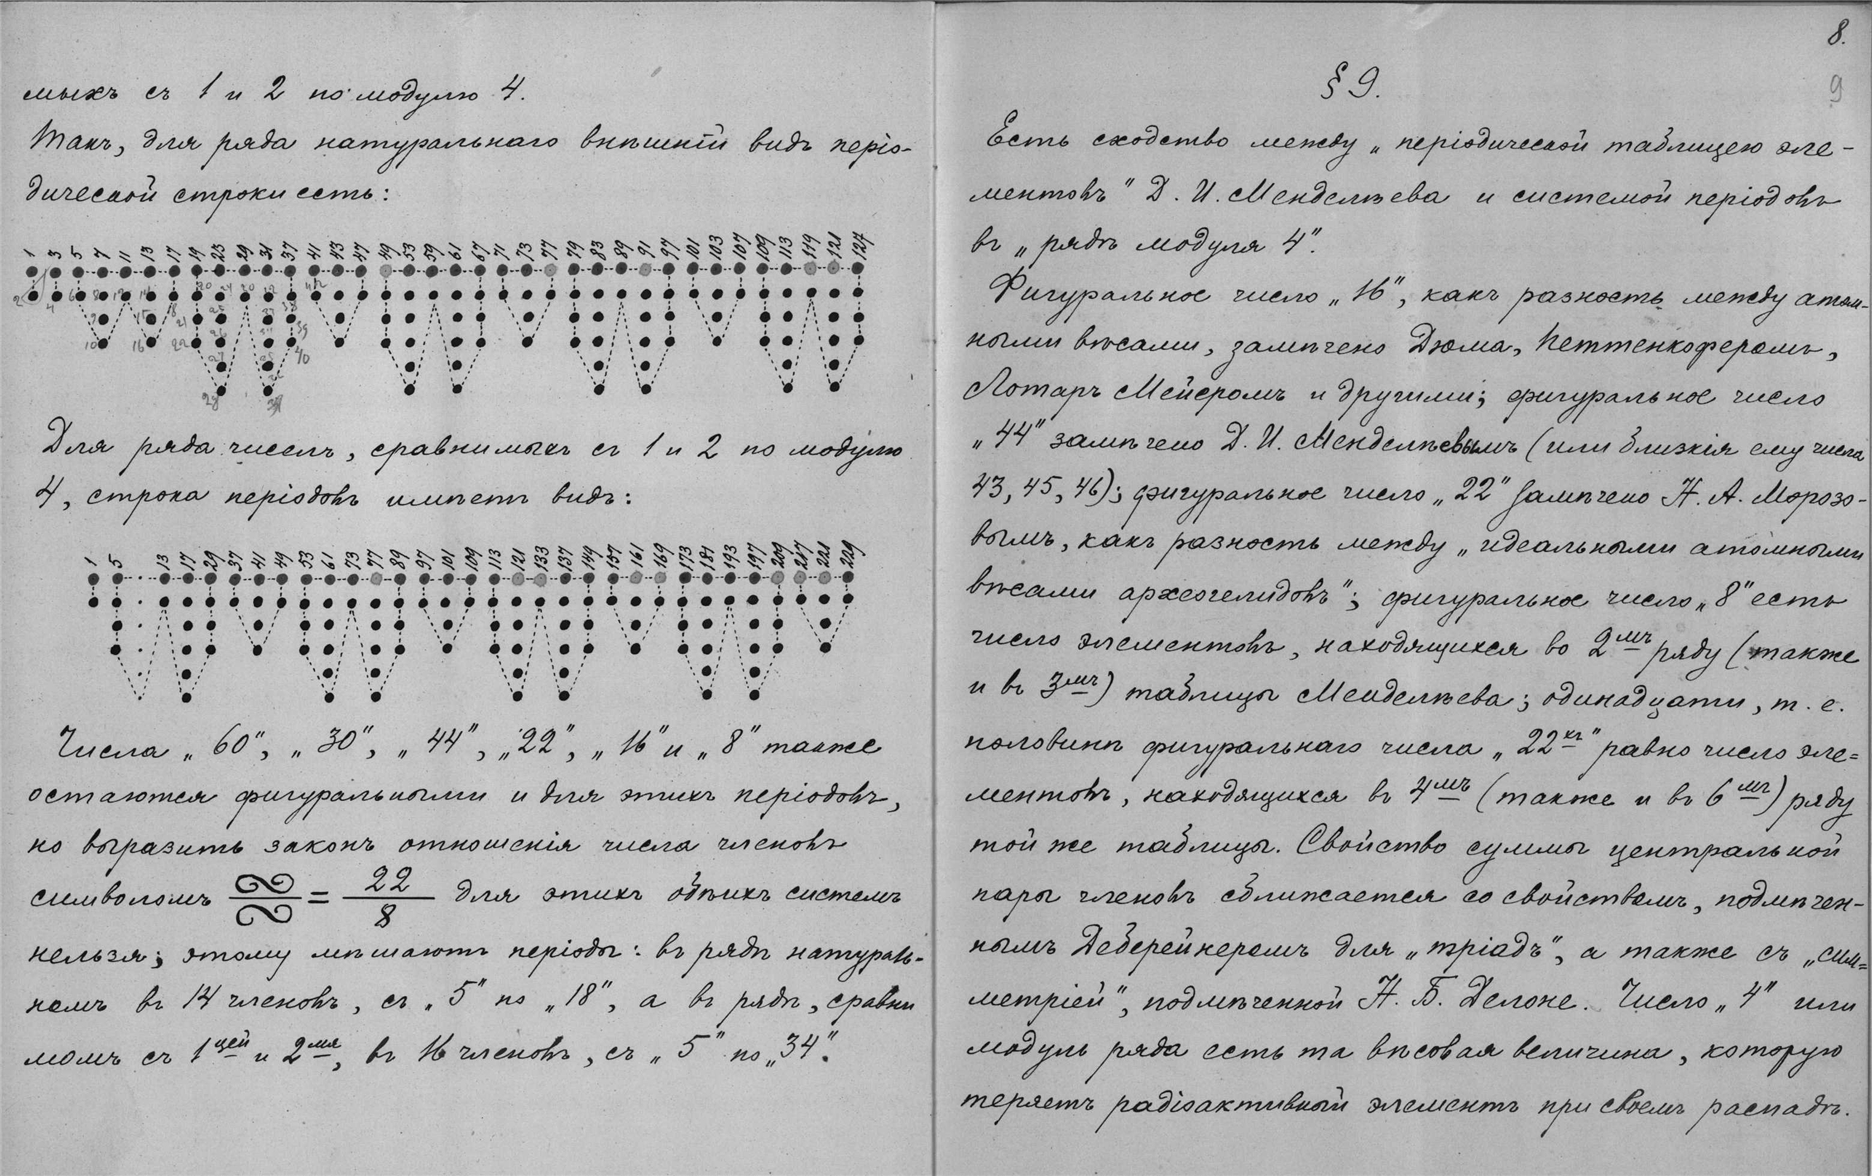 мыхъ съ 1 и 2 по модулю 4.
Такъ, для ряда натуральнаго внѣшній видъ періо-
дической строки есть:
1 3 5 7 11 13 17 19 23 29 31 37 41 43 47 49 53 59 61 67 71 73 77 79 83 89 91 97 101 103 107 109 113 119 121 127
Для ряда чиселъ, сравнимыхъ съ 1 и 2 по модулю
4, строка періодовъ имѣетъ видъ:
1 5 13 17 29 37 41 49 53 61 73 77 89 97 101 109 113 121 133 137 149 157 161 169 173 181 193 197 209 217 221 229
Числа „60", „30", „44", „22", „16" и „8" также
остаются фигуральными и для этихъ періодовъ,
но выразить законъ отношенія числа членовъ
символомъ = 22/8 для этихъ обѣихъ системъ
нельзя; этому мѣшаютъ періоды: въ рядѣ натураль-
номъ въ 14 членовъ, съ „5" по „18", а въ рядѣ, сравни
момъ съ 1цей и 2мя, въ 16 членовъ, съ „5" по „34".
8.
9
§ 9.
Есть сходство между „періодической таблицею эле-
ментовъ" Д. И. Менделѣева и системой періодовъ
въ „рядѣ модуля 4".
Фигуральное число „16", какъ разность между атом-
ными вѣсами, замѣчено Дюма, Петтенкоферомъ,
Лотаръ Мейеромъ и другими; фигуральное число
„44" замѣчено Д. И. Менделѣевымъ (или близкія ему числа
43, 45, 46); фигуральное число „22" замѣчено Н. А. Морозо-
вымъ, какъ разность между „идеальными атомными
вѣсами археогелидовъ"; фигуральное число „8" есть
число элементовъ, находящихся во 2мъ ряду (также
и въ 3мъ) таблицы Менделѣева; одинадцати, т. е.
половинѣ фигуральнаго числа „22хъ" равно число эле=
ментовъ, находящихся въ 4мъ (также и въ 6мъ) ряду
той же таблицы. Свойство суммы центральной
пары членовъ сближается со свойствомъ, подмѣчен-
нымъ Деберейнеромъ для „тріадъ", а также съ „сим=
метріей", подмѣченной Н. Б. Делоне. Число „4" или
модуль ряда есть та вѣсовая величина, которую
теряетъ радіоактивный элементъ при своемъ распадѣ.